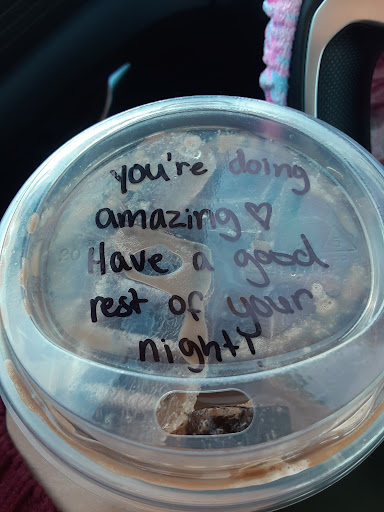 you're doing
amazing ♡
Have a good
rest of your
night!